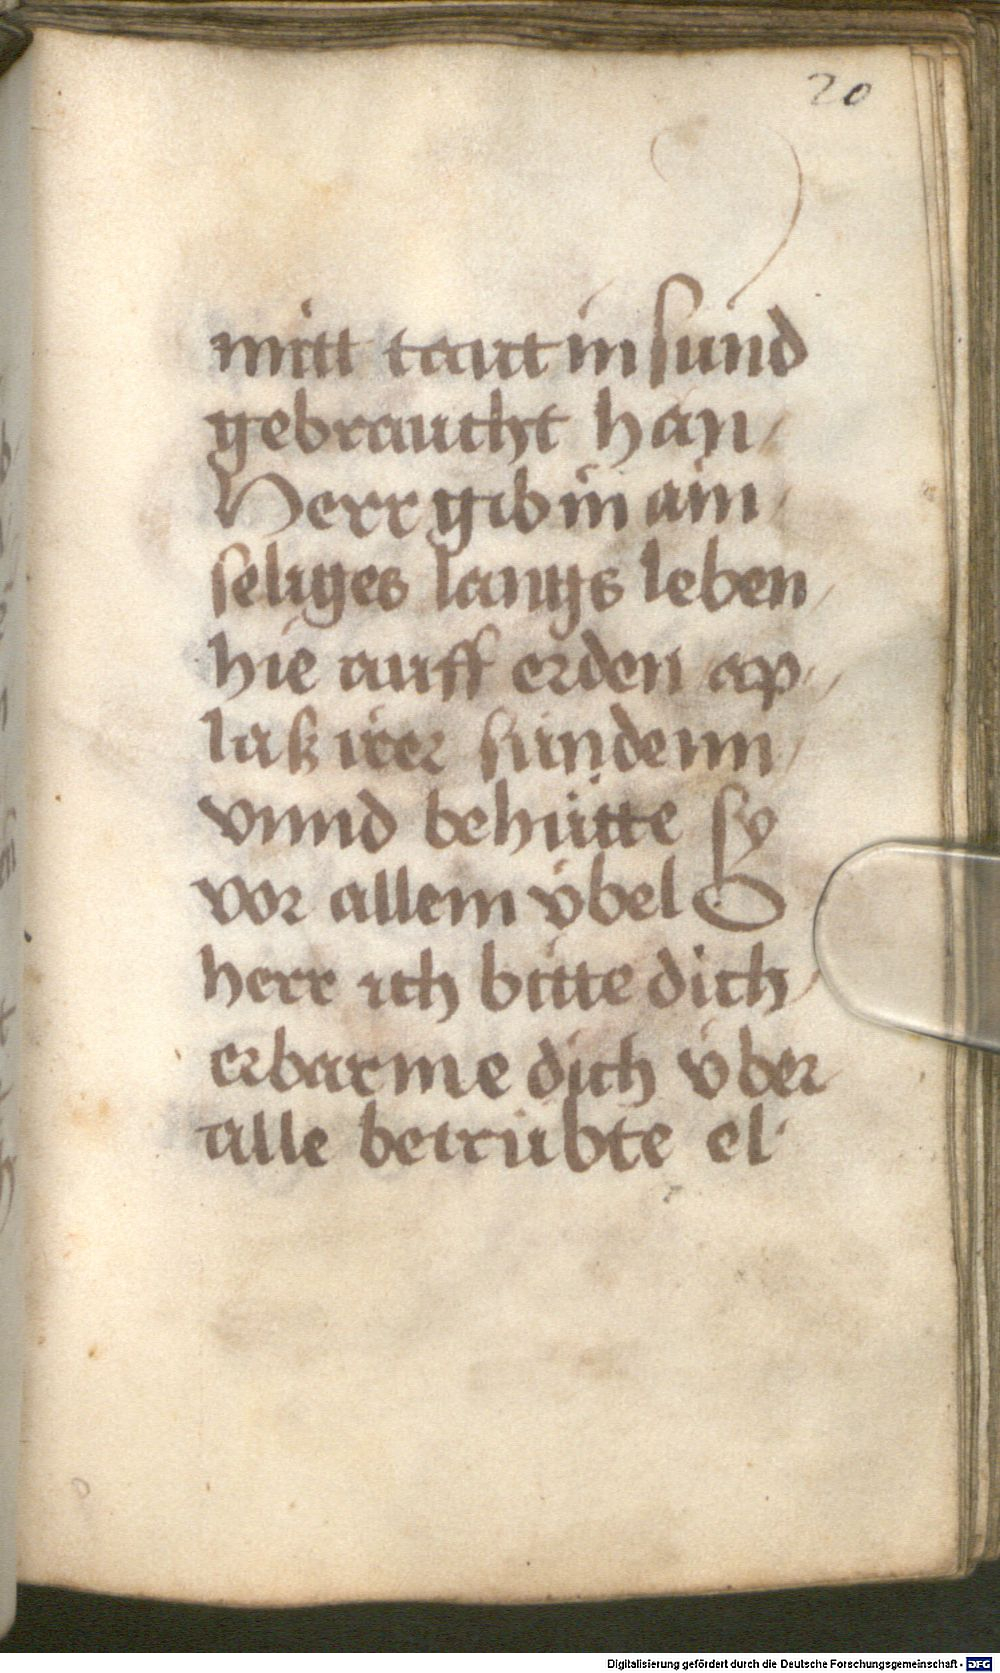 20
mitt taut in sund
gebraucht han /
Herr gib in ain /
seliges langs leben /
hie auff erden ap- /
laß irer sündenn /
vnnd behütte sy
vor allem v̈bel O
herr ich bitte dich /
erbarme dich v̈ber
alle betrübte el-
Digitalisierung gefördert durch die Deutsche Forschungsgemeinschaft - DFG